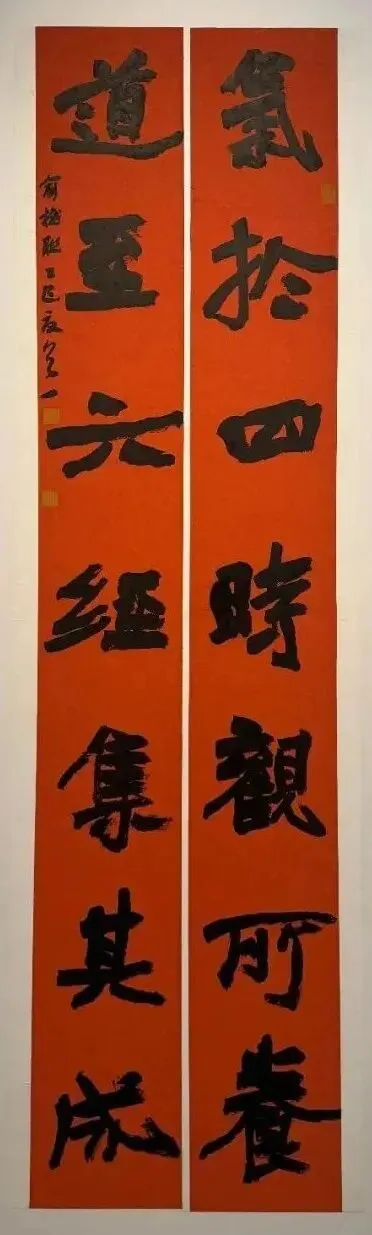 氣於四時觀所養
道至六經集其成
俞樾聯乙巳夏